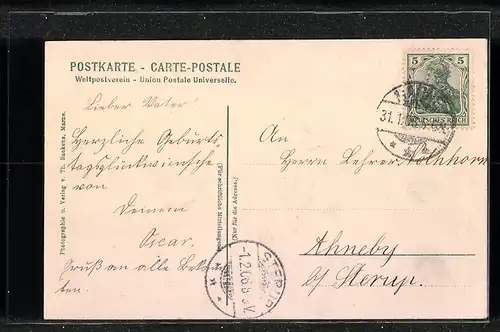 POSTKARTE - CARTE-POSTALE
Weltpostverein - Union Postale Universelle.
Lieber Vater!
Herzliche Geburts
tagsglückwünsche
von
Deinem
Oscar.
Gruß an alle Bekann
ten.
Photographie u. Verlag v. Th. Backens, Marne.
(Für schriftliche Mitteilungen.)
(Nur für die Adresse.)
5 5
DEUTSCHES REICH
31.1.
An
Herrn Lehrer
Ahneby
b/ Sterup.
STERUP
1.2.06. 8-9V.